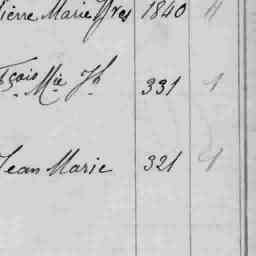 Pierre Marie Fres 1840 4
Fçois Mie Jh 331 1
Jean Marie 321 1